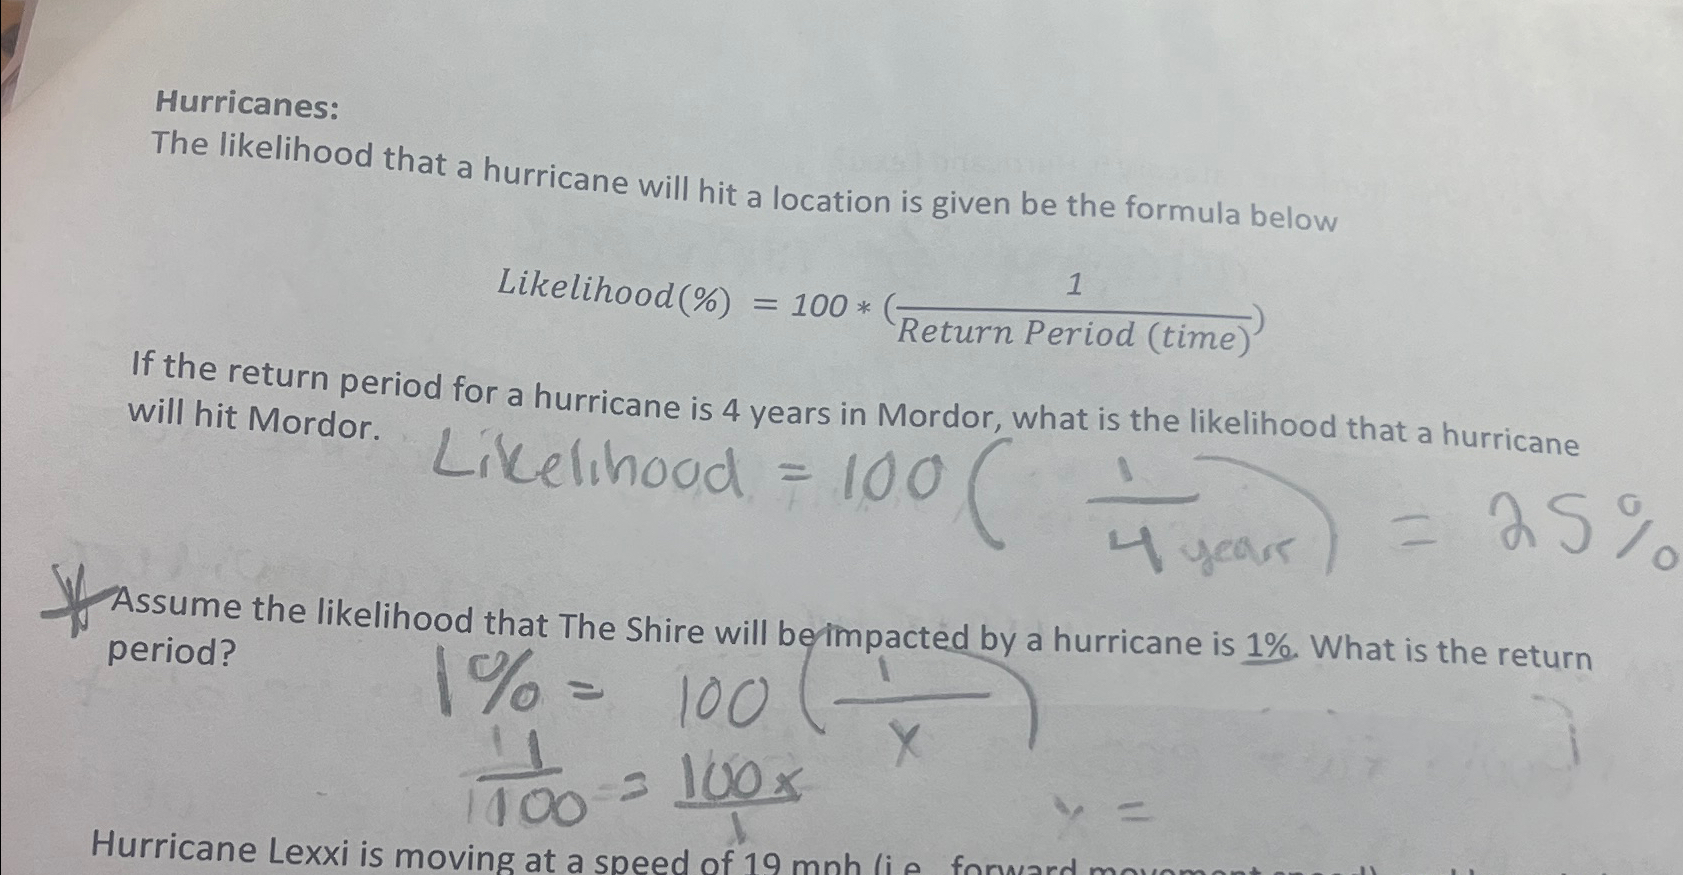 Hurricanes:
The likelihood that a hurricane will hit a location is given be the formula below
Likelihood(%) = 100 * (1/Return Period (time))
If the return period for a hurricane is 4 years in Mordor, what is the likelihood that a hurricane
will hit Mordor.
Likelihood = 100 (1/4 years) = 25%
Assume the likelihood that The Shire will be impacted by a hurricane is 1%. What is the return
period?
1% = 100 (1/x)
1/100 = 100x/1
x =
Hurricane Lexxi is moving at a speed of 19 mph (i.e. forward movement speed)